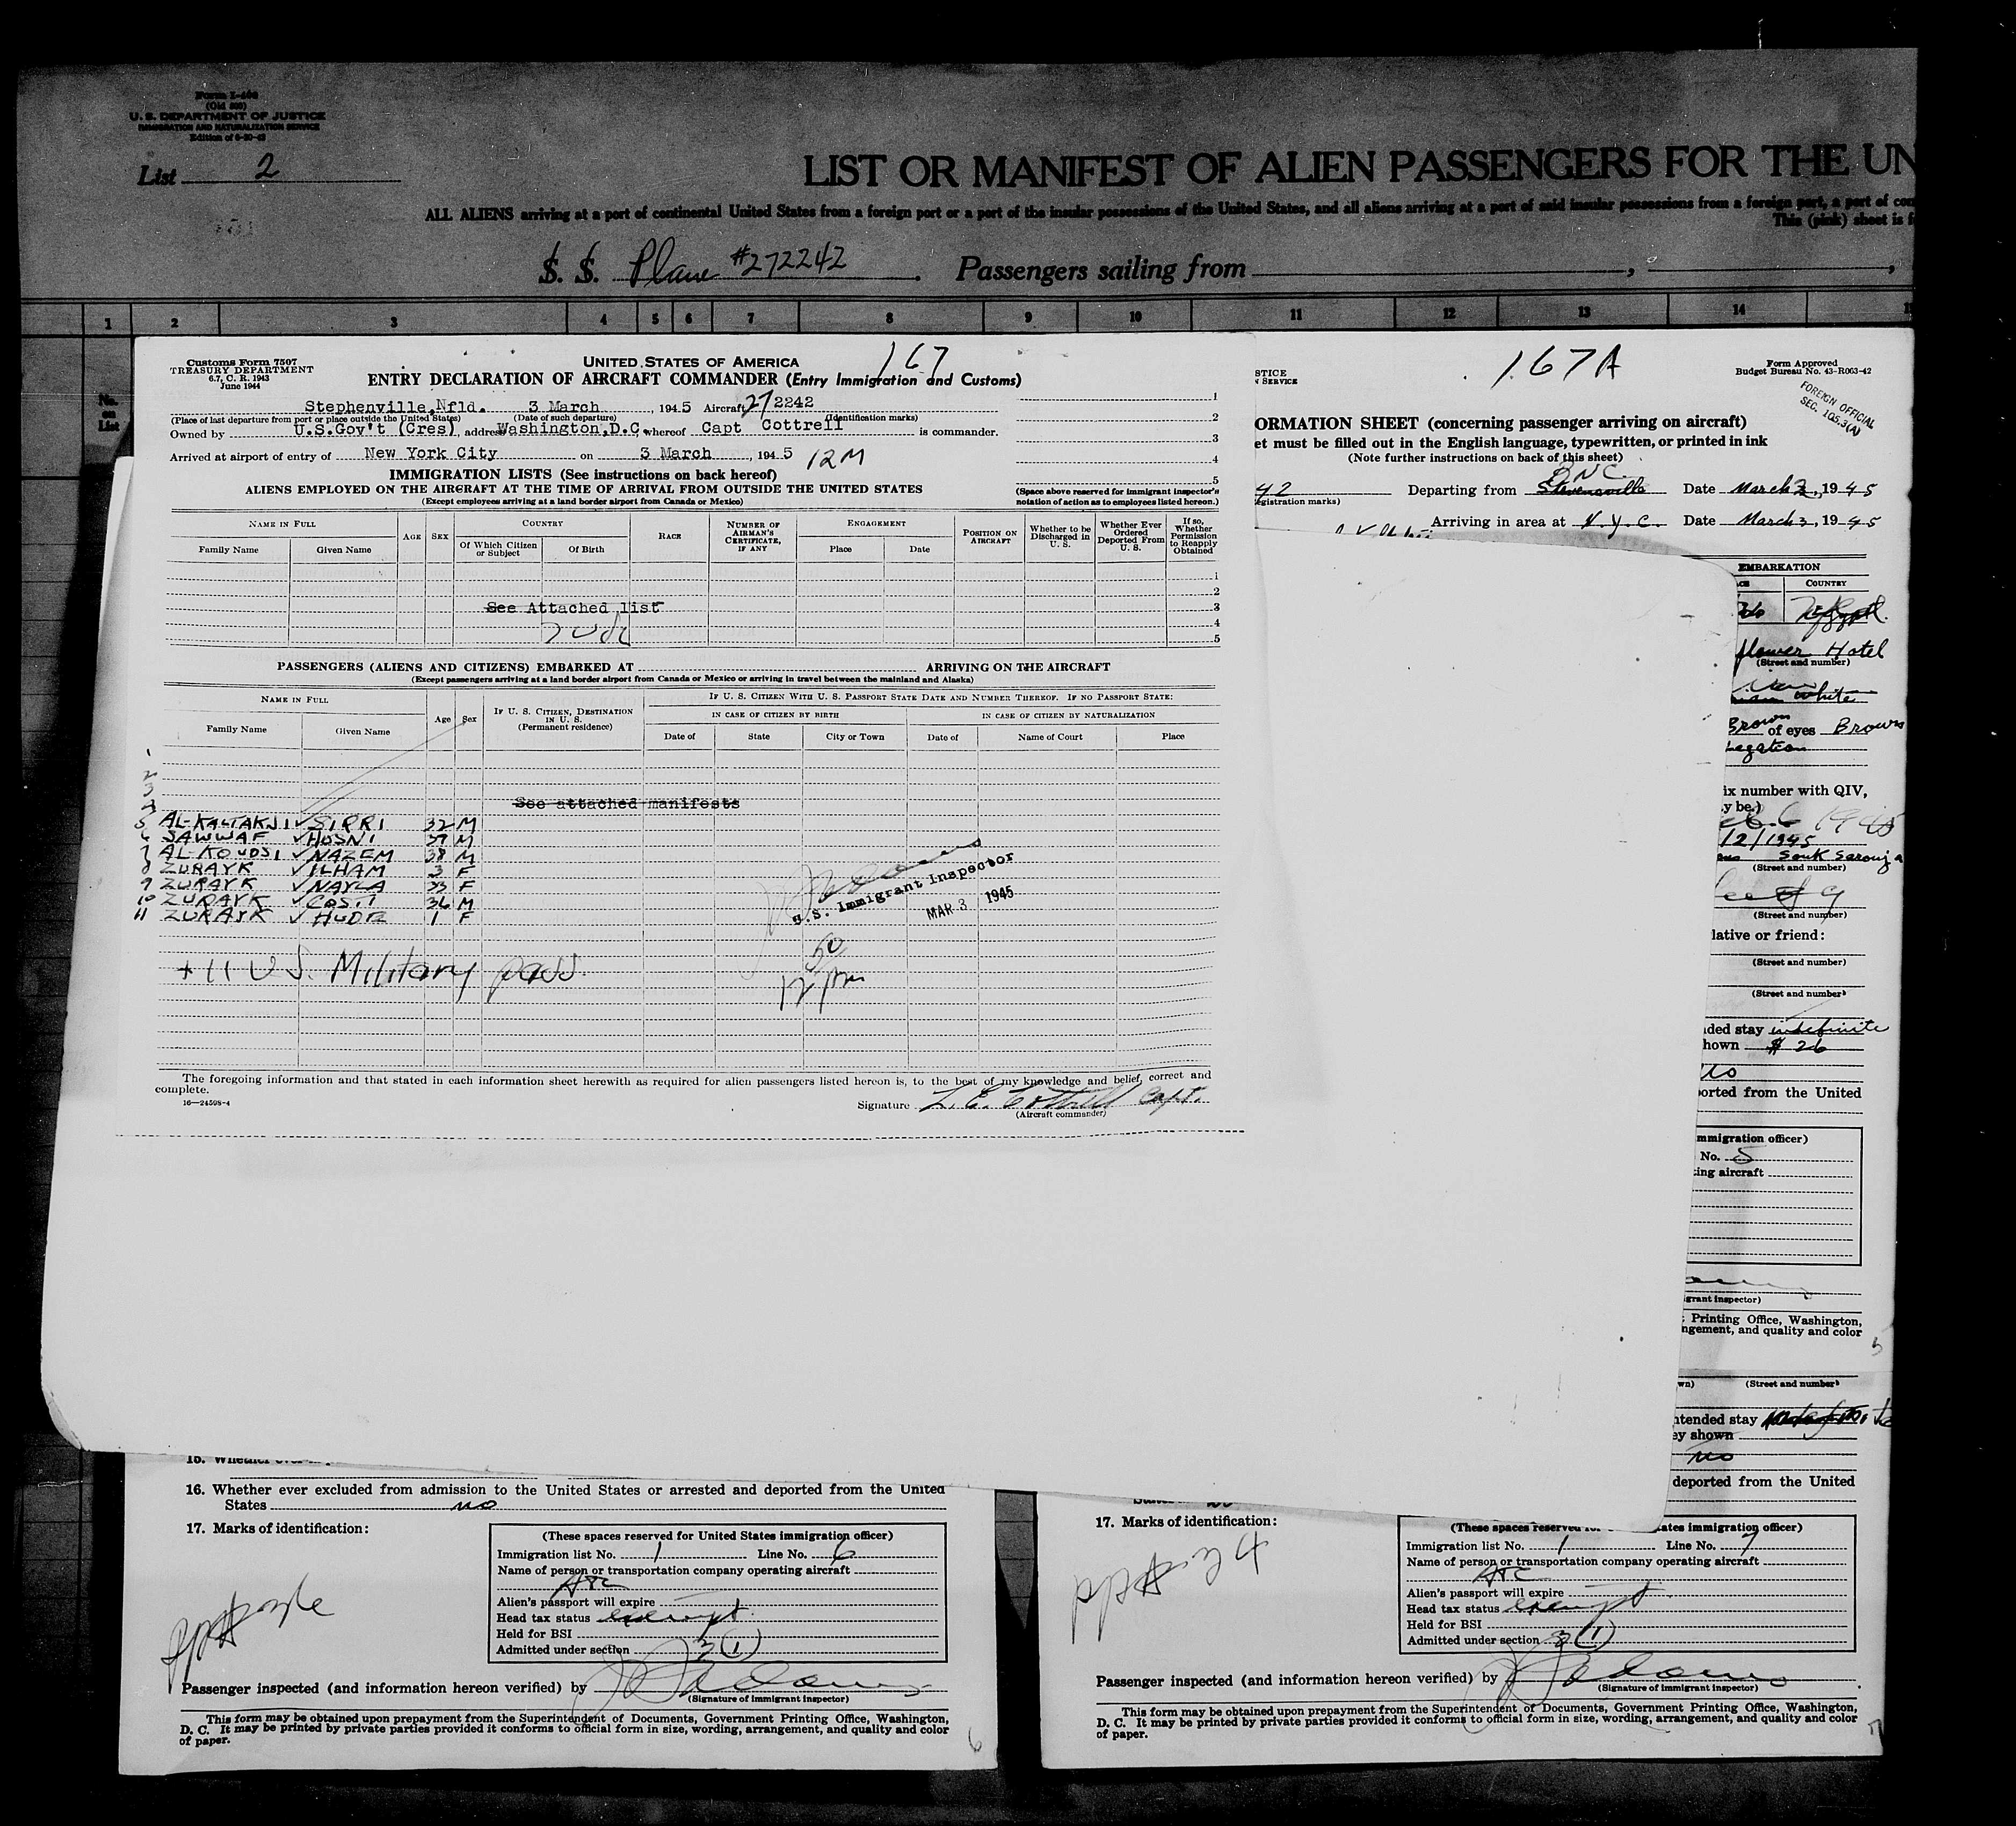 Form I-466
(Old 500)
U. S. DEPARTMENT OF JUSTICE
IMMIGRATION AND NATURALIZATION SERVICE
List 2
LIST OR MANIFEST OF ALIEN PASSENGERS FOR THE UN
ALL ALIENS arriving at a port of continental United States from a foreign port or a port of the insular possessions of the United States, and all aliens arriving at a port of said insular possessions from a foreign port, a port of con
This (pink) sheet is f
S. S. Plane #272242. Passengers sailing from
1 2 3 4 5 6 7 8 9 10 11 12 13 14
No. on List
Customs Form 7507
TREASURY DEPARTMENT
6.7, C. R. 1943
June 1944
UNITED STATES OF AMERICA
167
ENTRY DECLARATION OF AIRCRAFT COMMANDER (Entry Immigration and Customs)
Stephenville, Nfld. 3 March, 1945 Aircraft 272242
(Place of last departure from port or place outside the United States) (Date of such departure) (Identification marks)
Owned by U.S.Gov't (Cres), address Washington, D.C. whereof Capt Cottrell is commander.
Arrived at airport of entry of New York City on 3 March, 1945 12M
1
2
3
4
5
IMMIGRATION LISTS (See instructions on back hereof)
ALIENS EMPLOYED ON THE AIRCRAFT AT THE TIME OF ARRIVAL FROM OUTSIDE THE UNITED STATES
(Except employees arriving at a land border airport from Canada or Mexico)
(Space above reserved for immigrant inspector's notation of action as to employees listed hereon.)
NAME IN FULL
Family Name Given Name
AGE SEX
COUNTRY
Of Which Citizen or Subject Of Birth
RACE
NUMBER OF AIRMAN'S CERTIFICATE, IF ANY
ENGAGEMENT
Place Date
POSITION ON AIRCRAFT
Whether to be Discharged in U. S.
Whether Ever Ordered Deported From U. S.
If so, Whether Permission to Reapply Obtained
1
2
See Attached list 3
4
5
PASSENGERS (ALIENS AND CITIZENS) EMBARKED AT ARRIVING ON THE AIRCRAFT
(Except passengers arriving at a land border airport from Canada or Mexico or arriving in travel between the mainland and Alaska)
NAME IN FULL
Family Name Given Name
Age Sex
IF U. S. CITIZEN, DESTINATION IN U. S.
(Permanent residence)
IF U. S. CITIZEN WITH U. S. PASSPORT STATE DATE AND NUMBER THEREOF. IF NO PASSPORT STATE:
IN CASE OF CITIZEN BY BIRTH IN CASE OF CITIZEN BY NATURALIZATION
Date of State City or Town Date of Name of Court Place
1
2
3
4
See attached manifests
5 AL-KALTAKJI ✓ SIRRI 32 M
6 SAWWAF ✓ HUSNI 39 M
7 AL-KOUDSI ✓ NAZEM 38 M
8 ZURAYK ✓ ILHAM 3 F
9 ZURAYK ✓ NAYLA 33 F
10 ZURAYK ✓ COSTI 36 M
11 ZURAYK ✓ HUDA 1 F
U.S. Immigrant Inspector
MAR 3 1945
+ 11 U.S. Military pass.
50
12 pm
The foregoing information and that stated in each information sheet herewith as required for alien passengers listed hereon is, to the best of my knowledge and belief, correct and complete.
16—24598-4
Signature L. E. Cottrell Capt.
(Aircraft commander)
STICE
N SERVICE
167A
Form Approved
Budget Bureau No. 43-R063-42
FOREIGN OFFICIAL
SEC. 105.3(A)
ORMATION SHEET (concerning passenger arriving on aircraft)
et must be filled out in the English language, typewritten, or printed in ink
(Note further instructions on back of this sheet)
42 Departing from Stevensville Date March 3, 1945
egistration marks)
Arriving in area at N.Y.C. Date March 3, 1945
EMBARKATION
COUNTRY
flower Hotel
(Street and number)
white
Brown of eyes Brown
Legation
ix number with QIV,
y be.)
/2/1945
Souk Sarouja
(Street and number)
(Street and number)
lative or friend:
(Street and number)
(Street and number)
ded stay indefinite
hown $ 26
No
orted from the United
mmigration officer)
No. 5
ting aircraft
grant inspector)
t Printing Office, Washington,
ngement, and quality and color
5
wn) (Street and number)
ntended stay
ey shown
no
deported from the United
15. Whether ever
16. Whether ever excluded from admission to the United States or arrested and deported from the United
States no
17. Marks of identification:
(These spaces reserved for United States immigration officer)
Immigration list No. 1 Line No. 6
Name of person or transportation company operating aircraft
ATC
Alien's passport will expire
Head tax status exempt
Held for BSI
Admitted under section 3(1)
Passenger inspected (and information hereon verified) by
(Signature of immigrant inspector)
This form may be obtained upon prepayment from the Superintendent of Documents, Government Printing Office, Washington,
D. C. It may be printed by private parties provided it conforms to official form in size, wording, arrangement, and quality and color
of paper.
6
17. Marks of identification:
(These spaces reserved for United States immigration officer)
Immigration list No. 1 Line No. 7
Name of person or transportation company operating aircraft
ATC
Alien's passport will expire
Head tax status exempt
Held for BSI
Admitted under section 3(1)
Passenger inspected (and information hereon verified) by
(Signature of immigrant inspector)
This form may be obtained upon prepayment from the Superintendent of Documents, Government Printing Office, Washington,
D. C. It may be printed by private parties provided it conforms to official form in size, wording, arrangement, and quality and color
of paper.
7